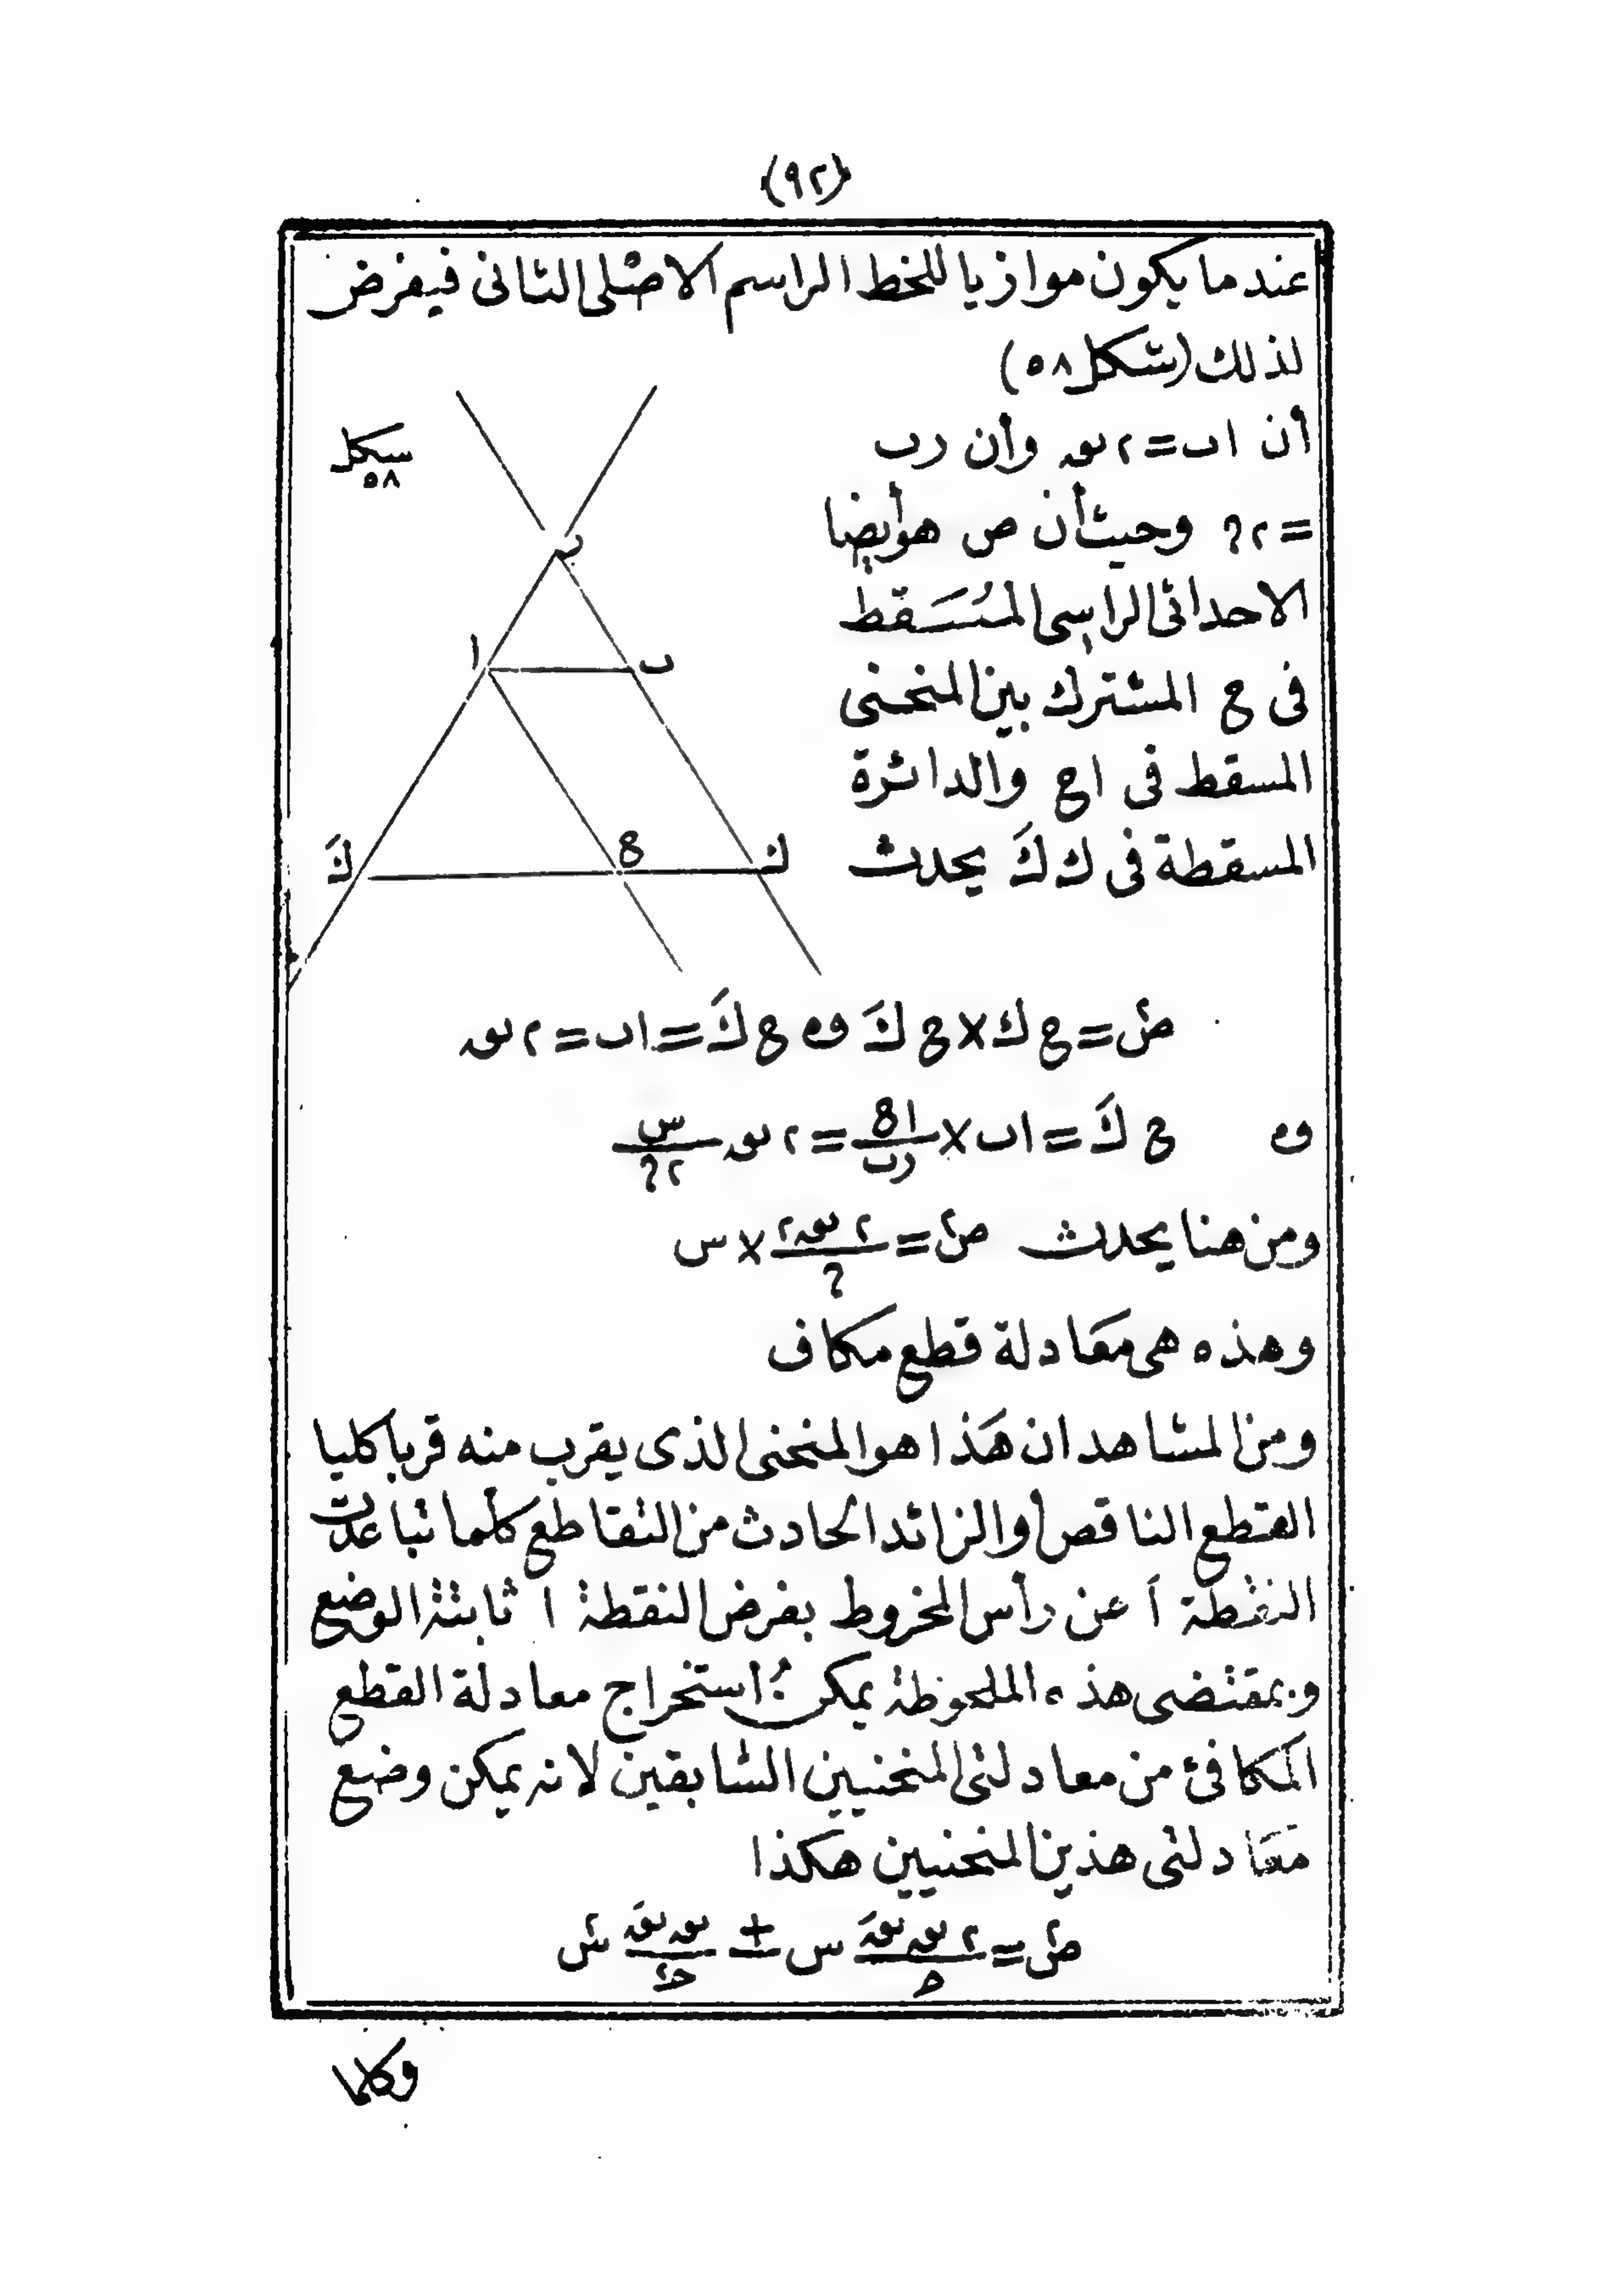 (٩٢)
عندما يكون موازيا للخط الراسم الاصلى الثانى فيفرض
لذلك (شكل ٥٨)
شكل
٥٨
أن اب = ٢ نق وأن رب
= ٢ ? وحيث أن ص هو أيضا
الاحداثى الراسى المسقط
فى ع المشترك بين المنحنى
المسقط فى اع والدائرة
المسقطة فى ك كَ يحدث
ر
ا ب
كَ ع ك
ص٢ = ع ك × ع كَ و ع كَ = اب = ٢ نق
و ع كَ = اب × اع/رب = ٢ نق س/٢?
ومن هنا يحدث ص٢ = ٢ نق٢/? × س
وهذه هى معادلة قطع مكاف
ومن المشاهد ان هذا هو المنحنى الذى يقرب منه قربا كليا
القطع الناقص أو الزائد الحادث من التقاطع كلما تباعدت
النقطة اَ عن رأس المخروط بفرض النقطة ا ثابتة الوضع
وبمقتضى هذه الملحوظة يمكن استخراج معادلة القطع
المكافئ من معادلتى المنحنيين السابقين لانه يمكن وضع
معادلتى هذين المنحنيين هكذا
ص٢ = ٢ نق نقَ/ح س ± نق نقَ/ح٢ س٢
وكلما